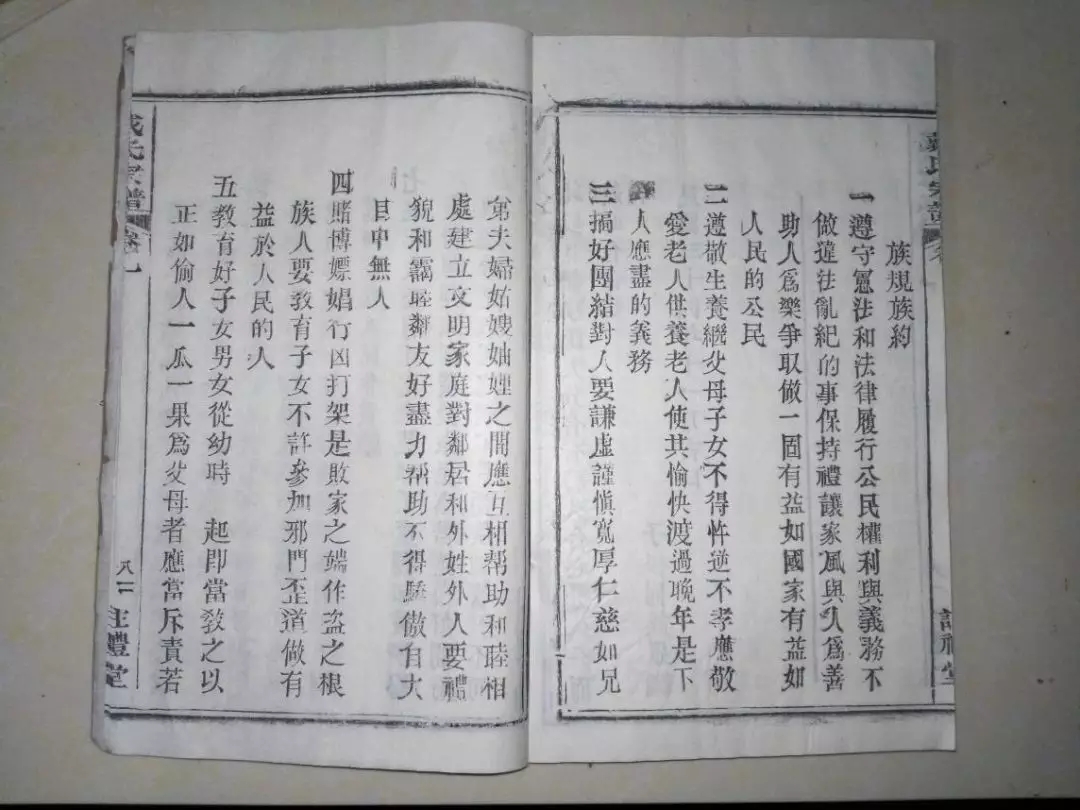 族規族約
一遵守憲法和法律履行公民權利與義務不
做違法亂紀的事保持禮讓家風與人爲善
助人爲樂爭取做一固有益如國家有益如
人民的公民
二遵敬生養繼父母子女不得忤逆不孝應敬
愛老人供養老人使其愉快渡過晚年是下
人應盡的義務
三搞好團結對人要謙虚謹慎寬厚仁慈如兄
弟夫婦姑嫂妯娌之間應互相幫助和睦相
處建立文明家庭對鄰居和外姓外人要禮
貌和靄睦鄰友好盡力帮助不得驕傲自大
目中無人
四賭博嫖娼行凶打架是敗家之端作盗之根
族人要教育子女不許參加邪門歪道做有
益於人民的人
五教育好子女男女從幼時 起即當教之以
正如偷人一瓜一果爲父母者應當斥責若
氏宗譜
卷一
八二
禮堂